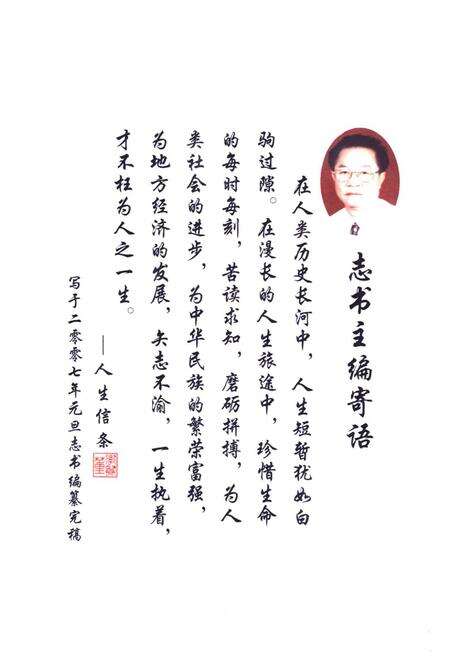 志书主编寄语
在人类历史长河中，人生短暂犹如白
驹过隙。在漫长的人生旅途中，珍惜生命
的每时每刻，苦读求知，磨砺拼搏，为人
类社会的进步，为中华民族的繁荣富强，
为地方经济的发展，矢志不渝，一生执着，
才不枉为人之一生。
——人生信条
写于二零零七年元旦志书编纂完稿